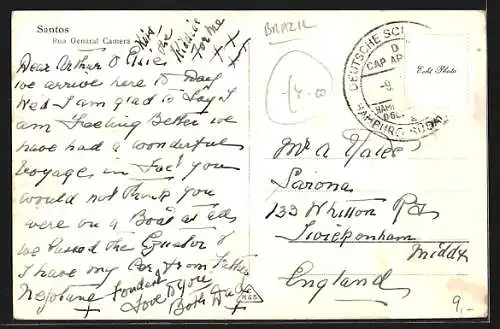 Santos
Rua General Camera
Kiss
the
Kiddies
for me
Dear Arthur & Elsie
we arrive here to Day
Wed I am glad to Say I
am Feeling Better we
have had a wonderful
Voyage in Fact you
would not think you
were on a Boat at all
we passed the Equator
I have my from
Fondest
Love to you
Both
BRAZIL
-/4-00
DEUTSCHE SC
D
CAP AR
-9
HAM
HAMBURG-SÜDA
Echt Photo
Mr A
Sarona
133 Whitton Rd
Twickenham
Middx
England
9,-